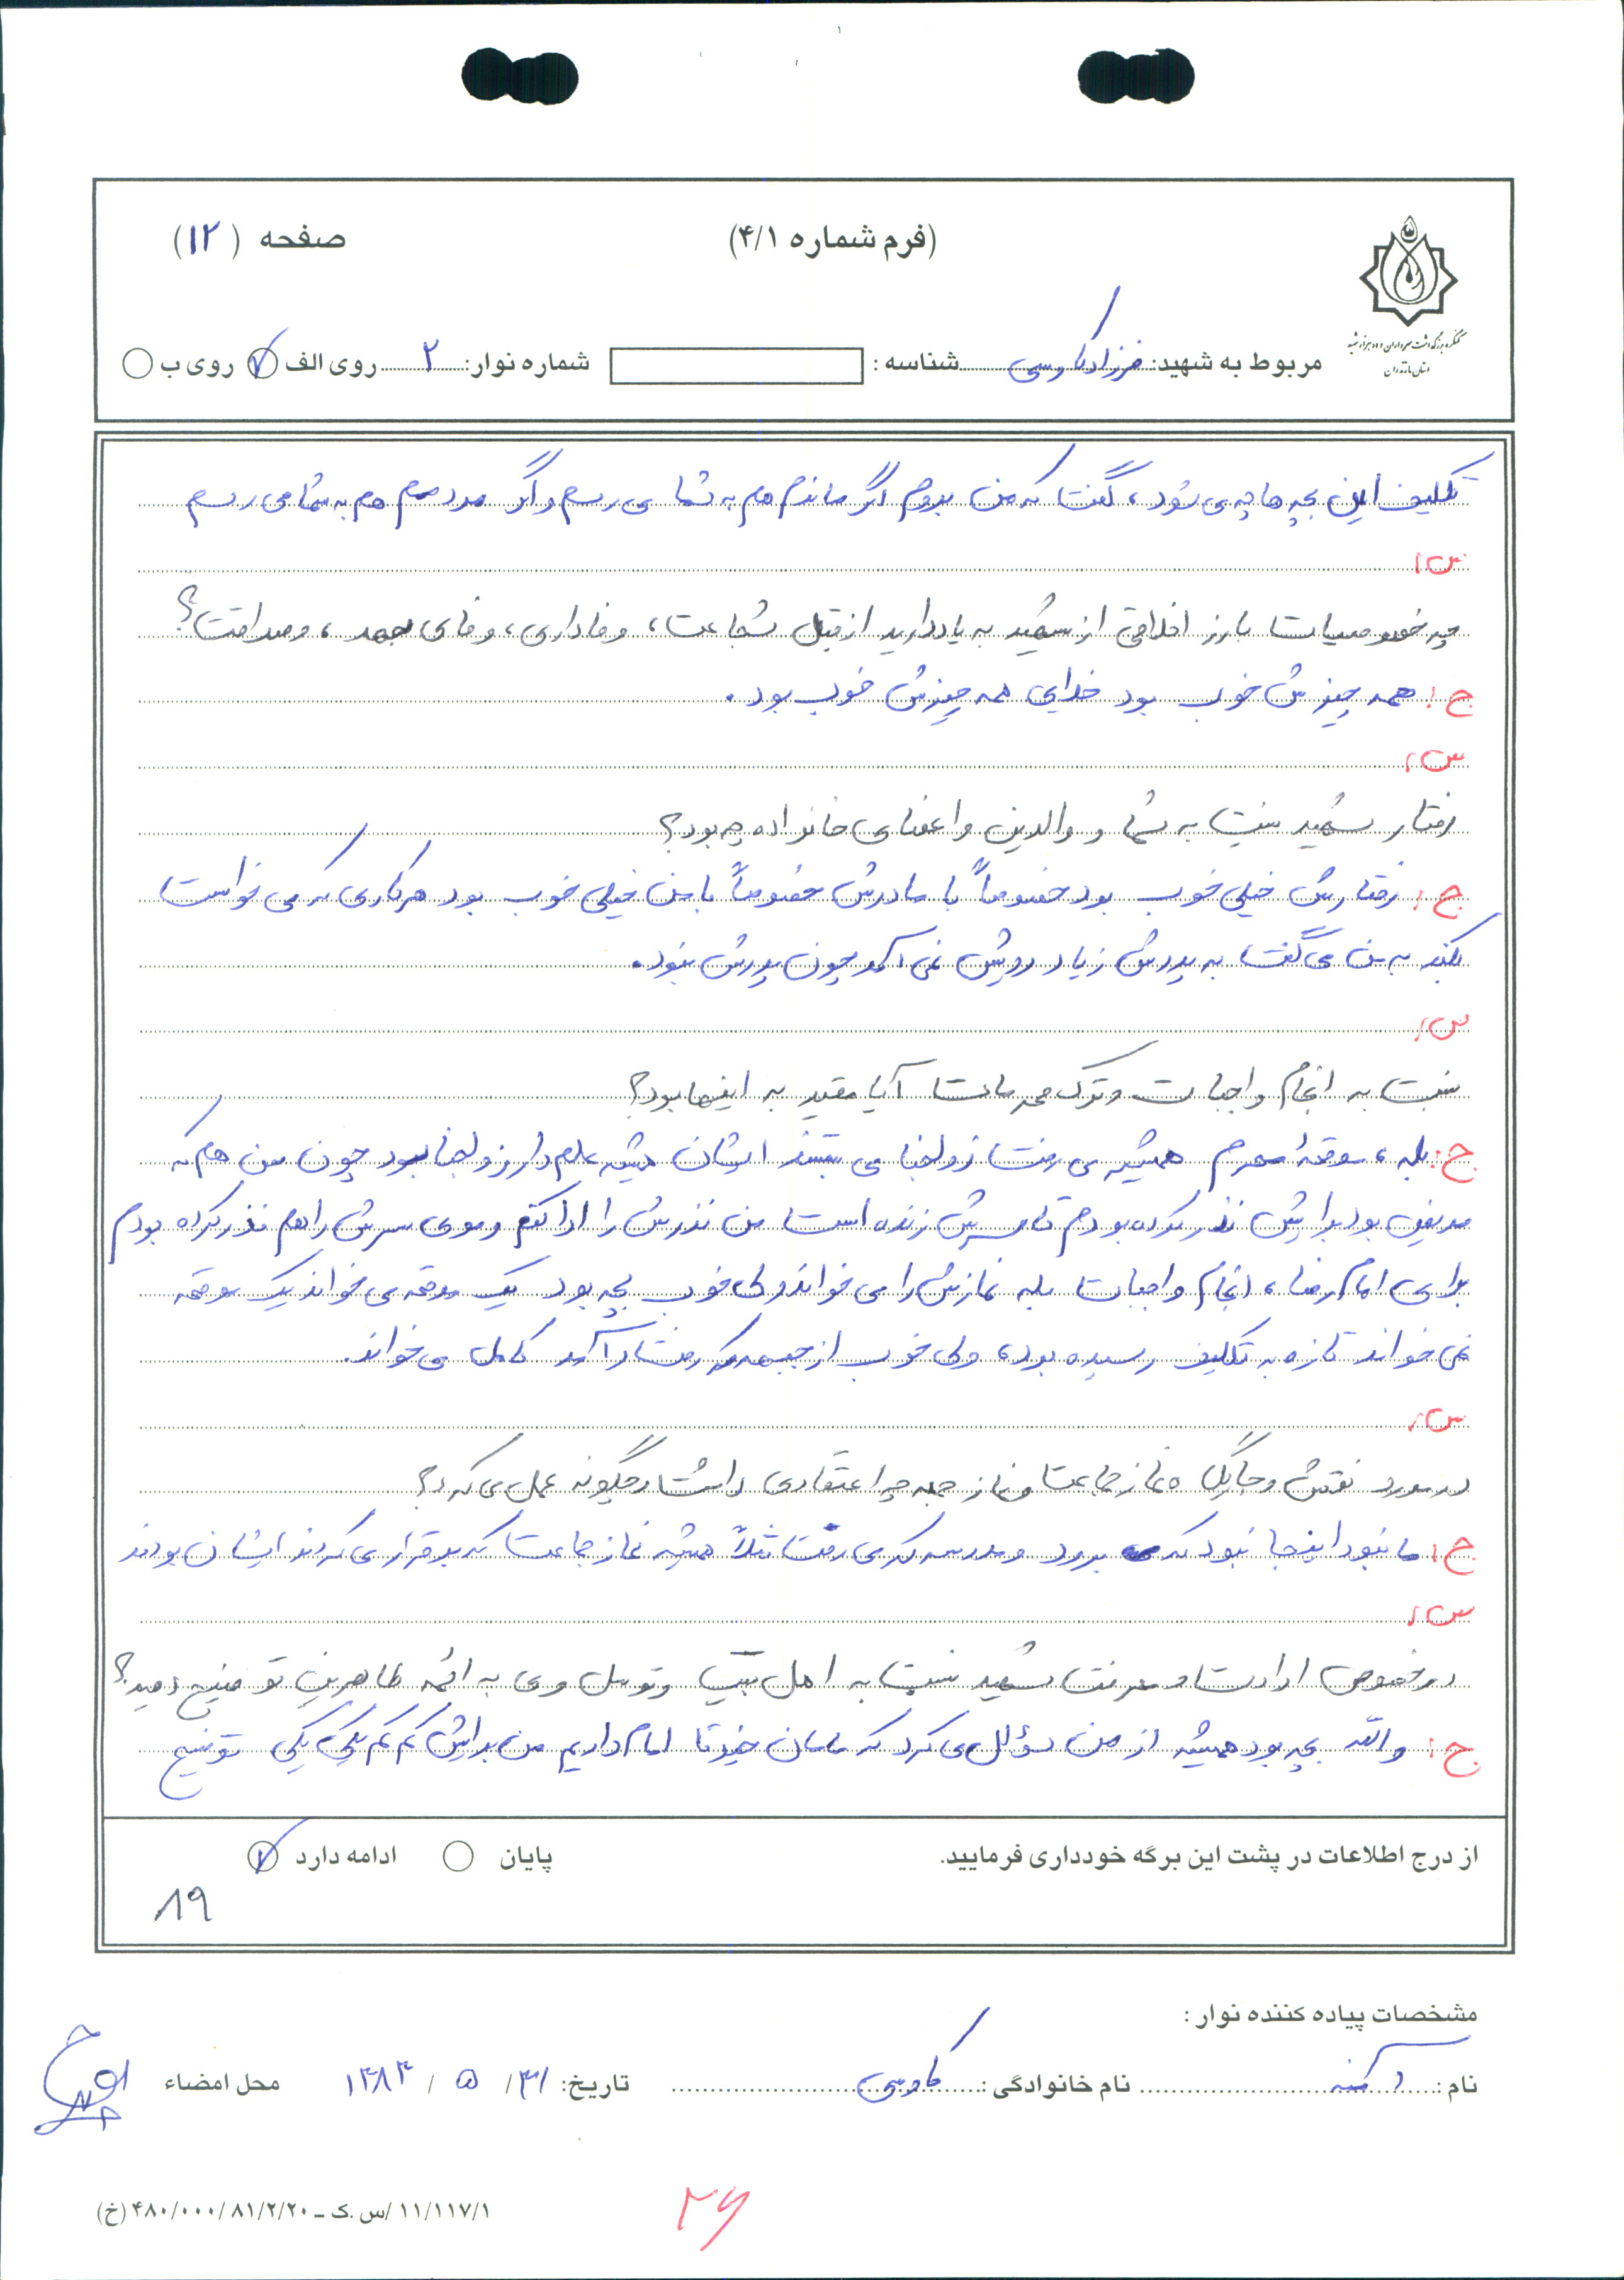 (فرم شماره ۴/۱)
صفحه (۱۲)
کنگره بزرگداشت سرداران و ده هزار شهید
استان مازندران
مربوط به شهید: فرزاد کاوسی شناسه : شماره نوار: ۲ روی الف روی ب
تکلیف این بچه ها چه می شود، گفت که من بروم اگر ماندم هم به شما می رسم و اگر مردم هم به شما می رسم
س:
چه خصوصیات بارز اخلاقی از شهید به یاد دارید از قبیل شجاعت، وفاداری، وفای بعهد، و صداقت؟
ج: همه چیزش خوب بود خدایی همه چیزش خوب بود.
س:
رفتار شهید نسبت به شما و والدین و اعضای خانواده چه بود؟
ج: رفتارش خیلی خوب بود خصوصاً با مادرش خصوصاً با من خیلی خوب بود هر کاری که می خواست
بکند به من می گفت به پدرش زیاد رویش نمی آمد چون پدرش نبود.
س:
نسبت به انجام واجبات و ترک محرمات آیا مقید به اینها بود؟
ج: بله، موقعۀ محرم همیشه می رفت ذولجنا می بستند ایشان همیشه علم دار ذولجنا بود چون من هم که
مریض بود برایش نذر کرده بودم تا پسرش زنده است من نذرش را ادا کنم و موی سرش را هم نذر کرده بودم
برای امام رضا، انجام واجبات بله نمازش را می خواند ولی خوب بچه بود یک موقعه می خواند یک موقعه
نمی خواند تازه به تکلیف رسیده بود، ولی خوب از جبهه که رفت و آمد کامل می خواند.
س:
در مورد نقش و جایگاه نماز جماعت و نماز جمعه چه اعتقادی داشت و چگونه عمل می کرد؟
ج: ما نبود اینجا نبود که برود و مدرسه که می رفت مثلاً همیشه نماز جماعت که برقرار می کردند ایشان بودند
س:
در خصوص ارادت و معرفت شهید نسبت به اهل بیت و توسل وی به ائمه طاهرین توضیح دهید؟
ج: والله بچه بود همیشه از من سؤال می کرد که مامان چند تا امام داریم من براش کم کم یکی یکی توضیح
از درج اطلاعات در پشت این برگه خودداری فرمایید. پایان ادامه دارد
۸۹
مشخصات پیاده کننده نوار :
نام : نام خانوادگی : کاوسی تاریخ: ۳۱/ ۵ / ۱۳۸۳ محل امضاء
۲۶
۱۱/۱۱۷/۱ /س.ک ـ ۸۱/۲/۲۰ /۴۸۰/۰۰۰ (خ)